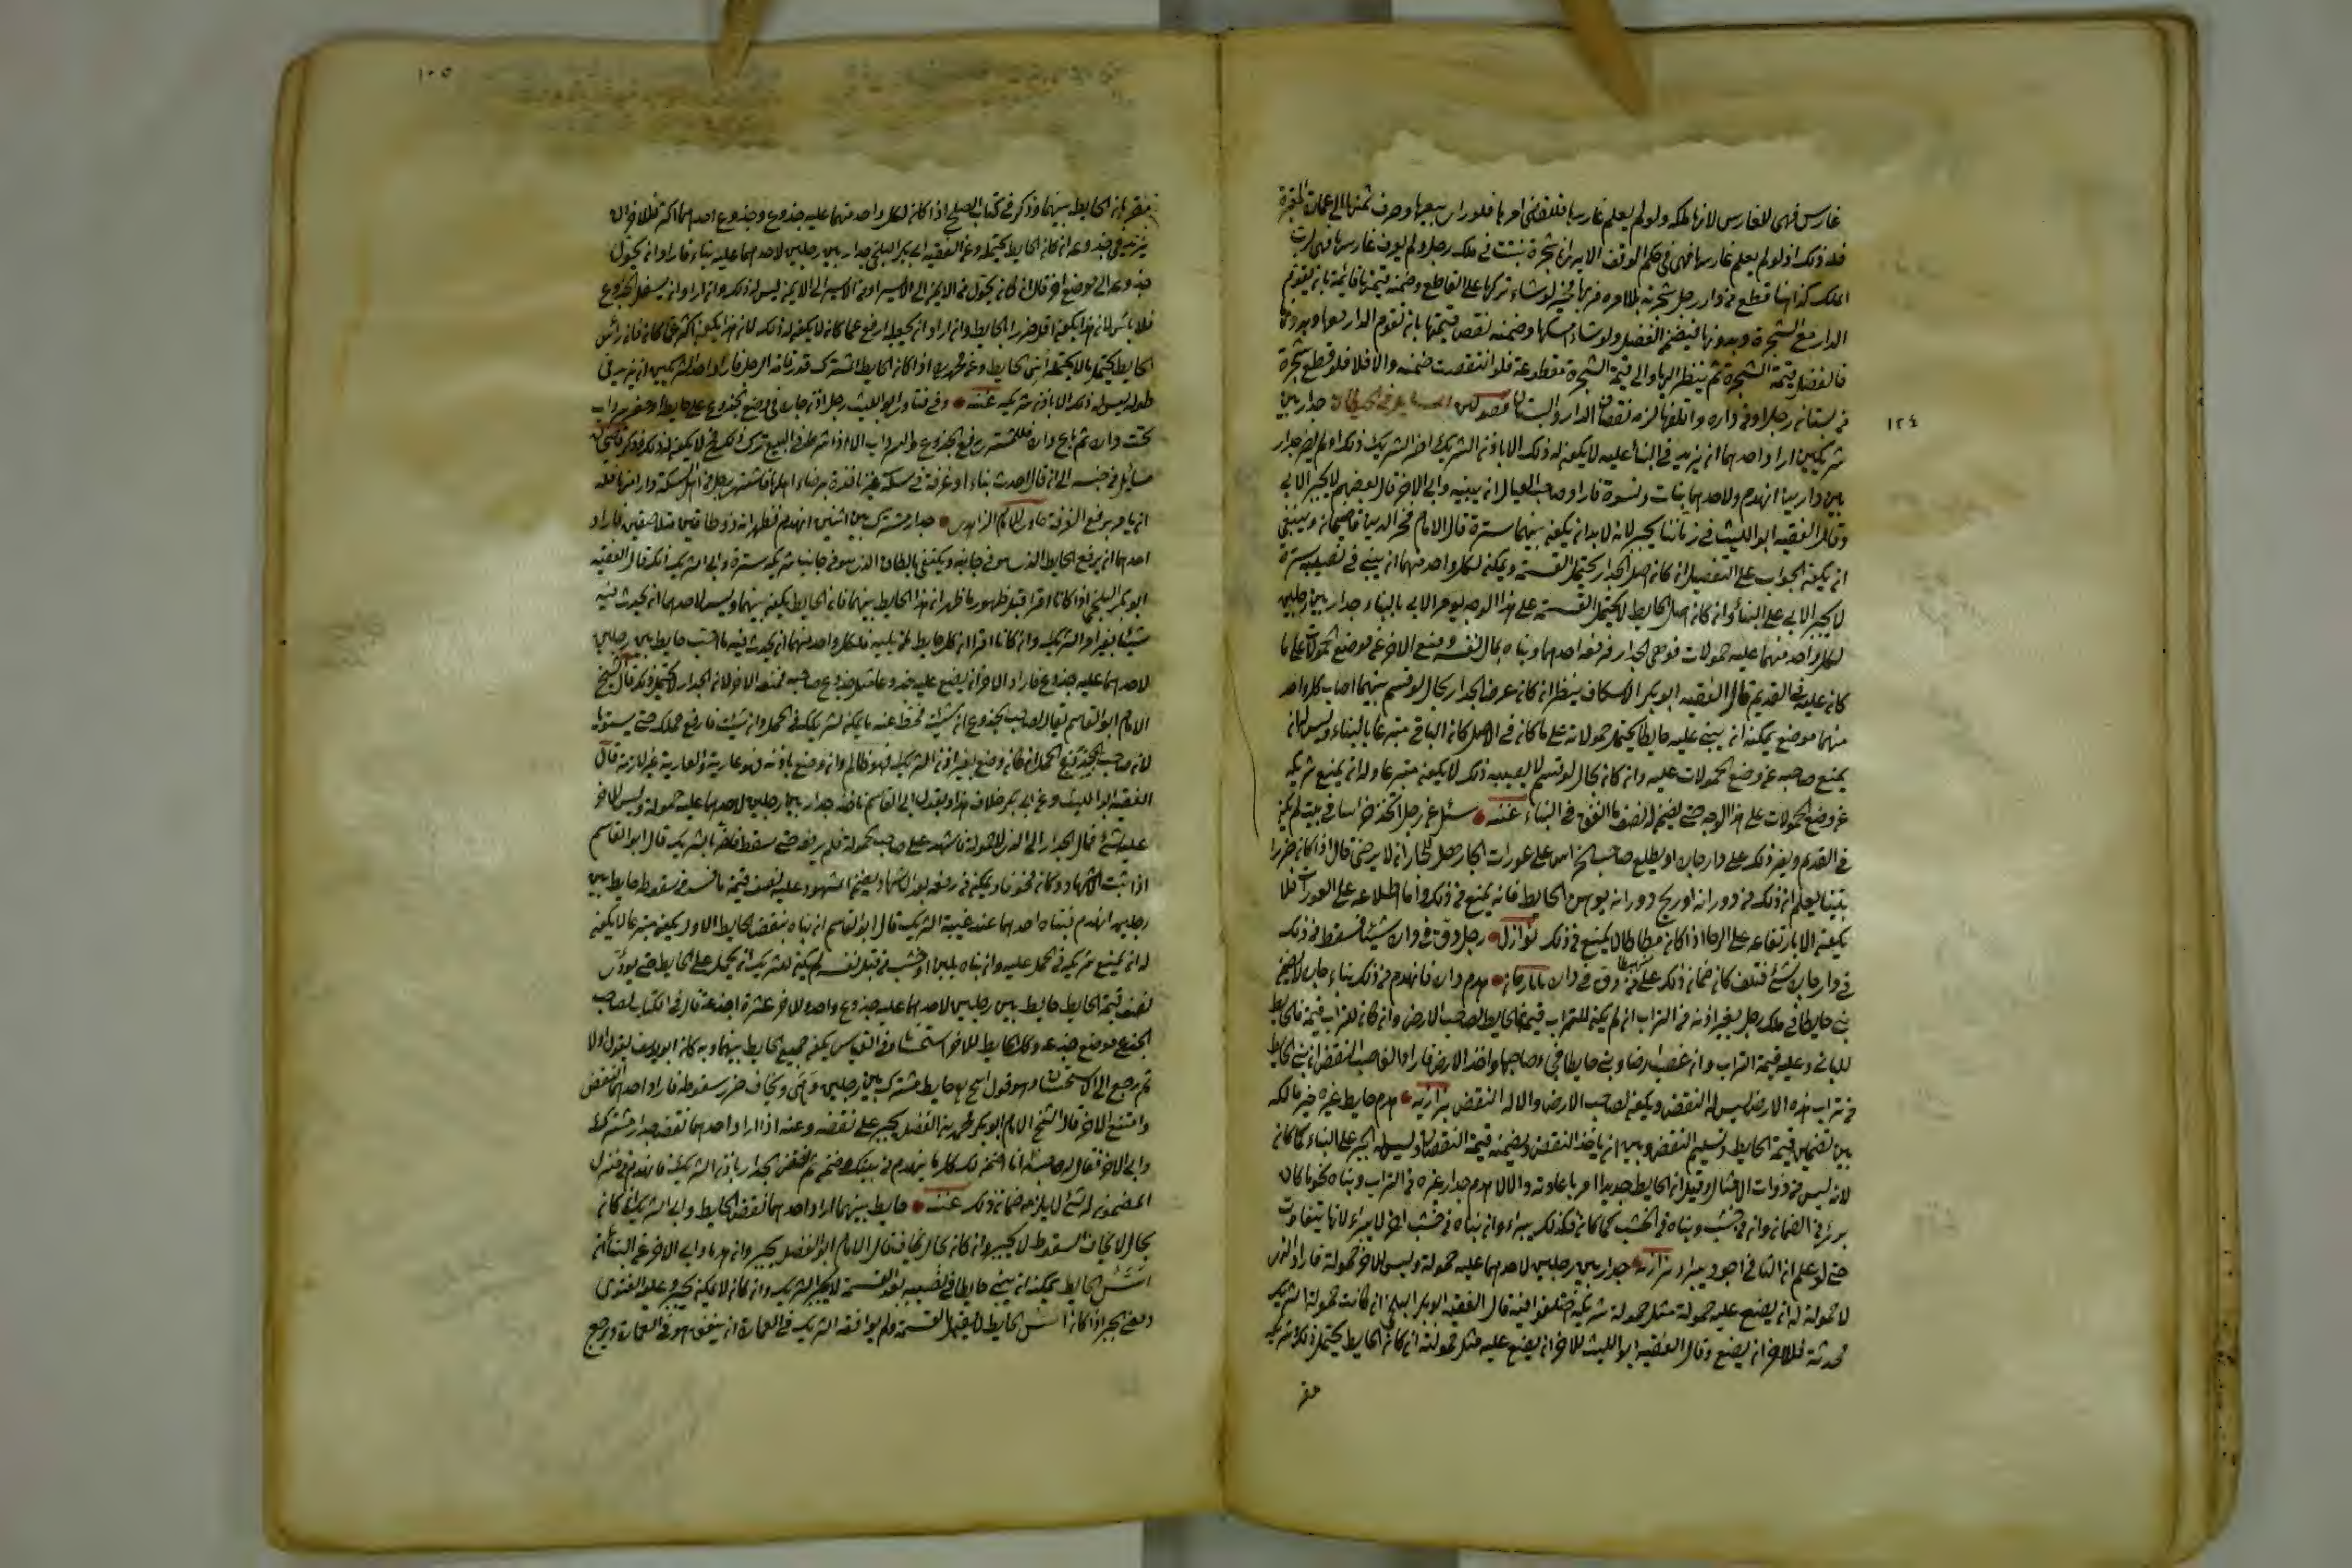 غارس فهى للغارس لانها ملكه ولو لم يعلم غارسها فللقاضى امرها فلو راى بيعها وصرف ثمنها الى عمارة المقبرة
فله ذلك اذ لو لم يعلم غارسها فهى فى حكم الوقف الا يرى ان شجرة نبتت فى ملك رجل ولم يعرف غارسها فهى لرب
الملك قطع من دار رجل شجرته بلا امره فربها مخير لو شاء تركها على القاطع وضمنه قيمتها قائمة بان يقوم
الدار مع الشجرة وبدونها فيضمن الفضل ولو شاء امسكها وضمنه نقص قيمتها بان تقوم الدار معها وبدونها
فالفضل قيمة الشجرة ثم ينظر اليها والى قيمة الشجرة مقطوعة فلو انتقصت ضمنه والا فلا فلو قطع شجرة
فى بستان رجل او فى داره واتلفها لزمه نقصان الدار والبستان فصولين المسايل فى الحيطان جدار بين
١٢٤
شريكين اراد احدهما ان يزيد فى البناء عليه لا يكون له ذلك الا باذن الشريك اضر الشريك ذلك او لم يضر جدار
بين دارين انهدم ولاحدهما بنات ونسوة فاراد صاحب العيال ان يبنيه وابى الاخر قال بعضهم لا يجبر الابى
وقال الفقيه ابو الليث فى زماننا يجبر لانه لا بد ان يكون بينهما سترة قال الامام فخر الدين قاضيخان وينبغى
ان يكون الجواب على التفصيل ان كان اصل الجدار يحتمل القسمة ويمكن لكل واحد منهما ان يبنى فى نصيبه سترة
لا يجبر الابى على البناء وان كان اصل الحايط لا يحتمل القسمة على هذا الوجه يؤمر الابى بالبناء جدار بين رجلين
لكل واحد منهما عليه حمولات فوهى الجدار فرفعه احدهما وبناه بمال نفسه ومنع الاخر عن موضع الحمولات على ما
كان عليه فى القديم قال الفقيه ابو بكر الاسكاف ينظر ان كان عرض الجدار بحال لو قسم بينهما اصاب كل واحد
منهما موضع يمكنه ان يبنى عليه حايطا يحتمل حمولاته على ما كان فى الاصل كان البانى متبرعا بالبناء وليس له ان
يمنع صاحبه عن وضع الحمولات عليه وان كان بحال لو قسم لا يصيبه ذلك لا يكون متبرعا وله ان يمنع شريكه
عن وضع الحمولات على هذا الوجه حتى يضمن له نصف ما انفق فى البناء عنه سئل عن رجل اتخذ خراسا فى بيت لم يكن
فى القديم ويضر ذلك على دار جاره او يطلع صاحب الخراس على عورات الجار هل للجار ان لا يرضى قال اذا كان ضررا
بينا يعلم ان ذلك من دورانه او ريح دورانه يوهن الحايط فانه يمنع من ذلك واما اطلاعه على العورات فلا
يكون الا بارتفاعه على الرحا اذا كان مطاطا لا يمنع من ذلك نوازل رجل دق فى داره شيئا فسقط من ذلك
فى دار جاره شئ فتلف كان ضمان ذلك على من دق فى داره هدم داره فانهدم من ذلك بناء جاره لا يضمن
بنى حايطا فى ملك رجل بغير اذنه من التراب ان لم يكن للتراب قيمة فالحايط لصاحب الارض وان كان للتراب قيمة فالحايط
للبانى وعليه قيمة التراب وان غصب ارضا وبنى حايطا فجاء صاحبها واخذ الارض فاراد الغاصب النقض ان بنى الحايط
من تراب هذه الارض ليس له النقض ويكون لصاحب الارض والا له النقض بزازيه هدم حايط غيره خير مالكه
بين تضمين قيمة الحايط وتسليم النقض وبين ان ياخذ النقض ويضمنه قيمة النقصان وليس له الجبر على البناء كما كان
لانه ليس من ذوات الامثال وقيل ان الحايط جديدا امر باعادته والا لا هدم جدار غيره من التراب وبناه نحو ما كان
برئ من الضمان وان من خشب وبناه من الخشب كما كان فكذلك يبراء وان بناه من خشب اخر لا يبراء لانها يتفاوت
حتى لو علم ان الثانى اجود يبراء بزازيه جدار بين رجلين لاحدهما عليه حمولة وليس للاخر حمولة فاراد الذى
لا حمولة له ان يضع عليه حمولة مثل حمولة شريكه اختلفوا فيه قال الفقيه ابو بكر البلخى ان كانت حمولة الشريك
محدثة فللاخر ان يضع وقال الفقيه ابو الليث للاخر ان يضع عليه مثل حمولته ان كان الحايط يحتمل ذلك شريكه
مقر
١٠٥
مقر بان الحايط بينهما وذكر فى كتاب الصلح اذا كان لكل واحد منهما عليه جذوع وجذوع احدهما اكثر فللاخر ان
يزيد فى جذوعه ان كان الحايط يحتمله وعن الفقيه ابى بكر البلخى جدار بين رجلين لاحدهما عليه بناء فاراد ان يحول
جذوعه الى موضع اخر قال ان كان يحول من الايمن الى الايسر او من الايسر الى الايمن ليس له ذلك وان اراد ان يسفل الجذوع
فلا باس لانه هذا يكون اقل ضررا بالحايط وان اراد ان يجعله ارفع عما كان لا يكون له ذلك لانه هذا يكون اكثر مما كان فان راس
الحايط يحتمل ما لا يحتمل اس الحايط وعن محمد اذا كان الحايط المشترك قدر قامة الرجل فاراد احد الشريكين ان يزيد فى
طوله ليس له ذلك الا باذن شريكه عنه وفى فتاوى ابو الليث رجل اذن جاره فى وضع الجذوع على حايطه او حفر سرداب
تحت داره ثم باع داره فللمشترى رفع الجذوع والسرداب الا اذا شرط فى البيع ترك ذلك فح لا يكون له ذلك وذكر قاضيخان
مسايل من جنسه الى ان قال احدث بناء او غرفة فى سكة غير نافذة برضاء اهلها فاشترى رجل من اهل السكة دارا منها فله
ان يامر برفع الغرفة جدار مشترك بين اثنين انهدم فظهر انه ذو طاقين متلاصقين فاراد
احدهما ان يرفع الحايط الذى هو فى جانبه ويكتفى بالطاق الذى هو فى جانب شريكه سترة وابى الشريك ذلك قال الفقيه
ابو بكر البلخى اذا كانا اقرا قبل ظهور ما ظهر ان هذا الحايط بينهما فان الحايط يكون بينهما وليس لاحدهما ان يحدث فيه
شيئا بغير امر الشريك وان كانا اقرا ان كل حايط لمن يليه فلكل واحد منهما ان يحدث فيه ما احب حايط بين رجلين
لاحدهما عليه جذوع فاراد الاخر ان يضع عليه جذوعا مثل جذوع صاحبه فمنعه الاخر لان الجدار لا يحتمل ذلك قال الشيخ
الامام ابو القاسم يقال لصاحب الجذوع ان شئت فحط عنه ما يمكن لشريكك من الحمل وان شئت فارفع حملك حتى يستويا
لان صاحب الجذوع الحمل ان كان وضع بغير اذن الشريك فهو ظالم وان وضع باذنه فهو عارية والعارية غير لازمة قال
الفقيه ابو الليث وعن ابى بكر خلاف هذا وبقول ابى القاسم ناخذ جدار بين رجلين لاحدهما عليه حمولة وليس للاخر
عليه شئ فمال الجدار الى الذى لا حمولة له فاشهد على صاحب الحمولة فلم يرفعه حتى سقط فاضر بالشريك قال ابو القاسم
اذا ثبت الاشهاد وكان مخوفا ويمكن من رفعه بعد الاشهاد يضمن المشهود عليه نصف قيمة ما فسد من سقوط حايط بين
رجلين انهدم فبناه احدهما عند غيبة الشريك قال ابو القاسم ان بناه بنقض الحايط الاول يكون متبرعا لا يكون
له ان يمنع شريكه من الحمل عليه وان بناه بلبن او خشب من قبل نفسه لم يكن للشريك ان يحمل على الحايط حتى يؤدى
نصف قيمة الحايط حايط بين رجلين لاحدهما عليه جذوع واحد وللاخر عشرة اجذعة قال فى الكتاب لصاحب
الجذع موضع جذعه وكل الحايط للاخر استحسنا وفى القياس يكون جميع الحايط بينهما وبه كان ابو يوسف يقول اولا
ثم رجع الى الاستحسان وهو قول ابى ح حايط مشترك بين رجلين وهى ويخاف ضرر سقوطه فاراد احدهما النقض
وامتنع الاخر قال الشيخ الامام ابو بكر محمد بن الفضل يجبر على نقضه وعنه اذا اراد احدهما نقض جدار مشترك
وابى الاخر فقال له صاحبه انا اضمن لك كل ما ينهدم من بيتك وضمن ثم نقض الجدار باذن الشريك فانهدم من منزل
المضمون له شئ لا يلزمه ضمان ذلك عنه حايط بينهما اراد احدهما نقض الحايط وابى الشريك ان كان
بحال لا يخاف السقوط لا يجبر وان كان بحال يخاف قال الامام ابو الفضل يجبر وان هدما وابى الاخر عن البناء ان
اسس الحايط يمكن ان يبنى حايطا فى نصيبه بعد القسمة لا يجبر الشريك وان كان لا يمكن يجبر وعليه الفتوى
ومعنى الجبر اذا كان اسس الحايط لا يقبل القسمة ولم يوافقه الشريك فى العمارة ان ينفق هو فى العمارة ويرجع